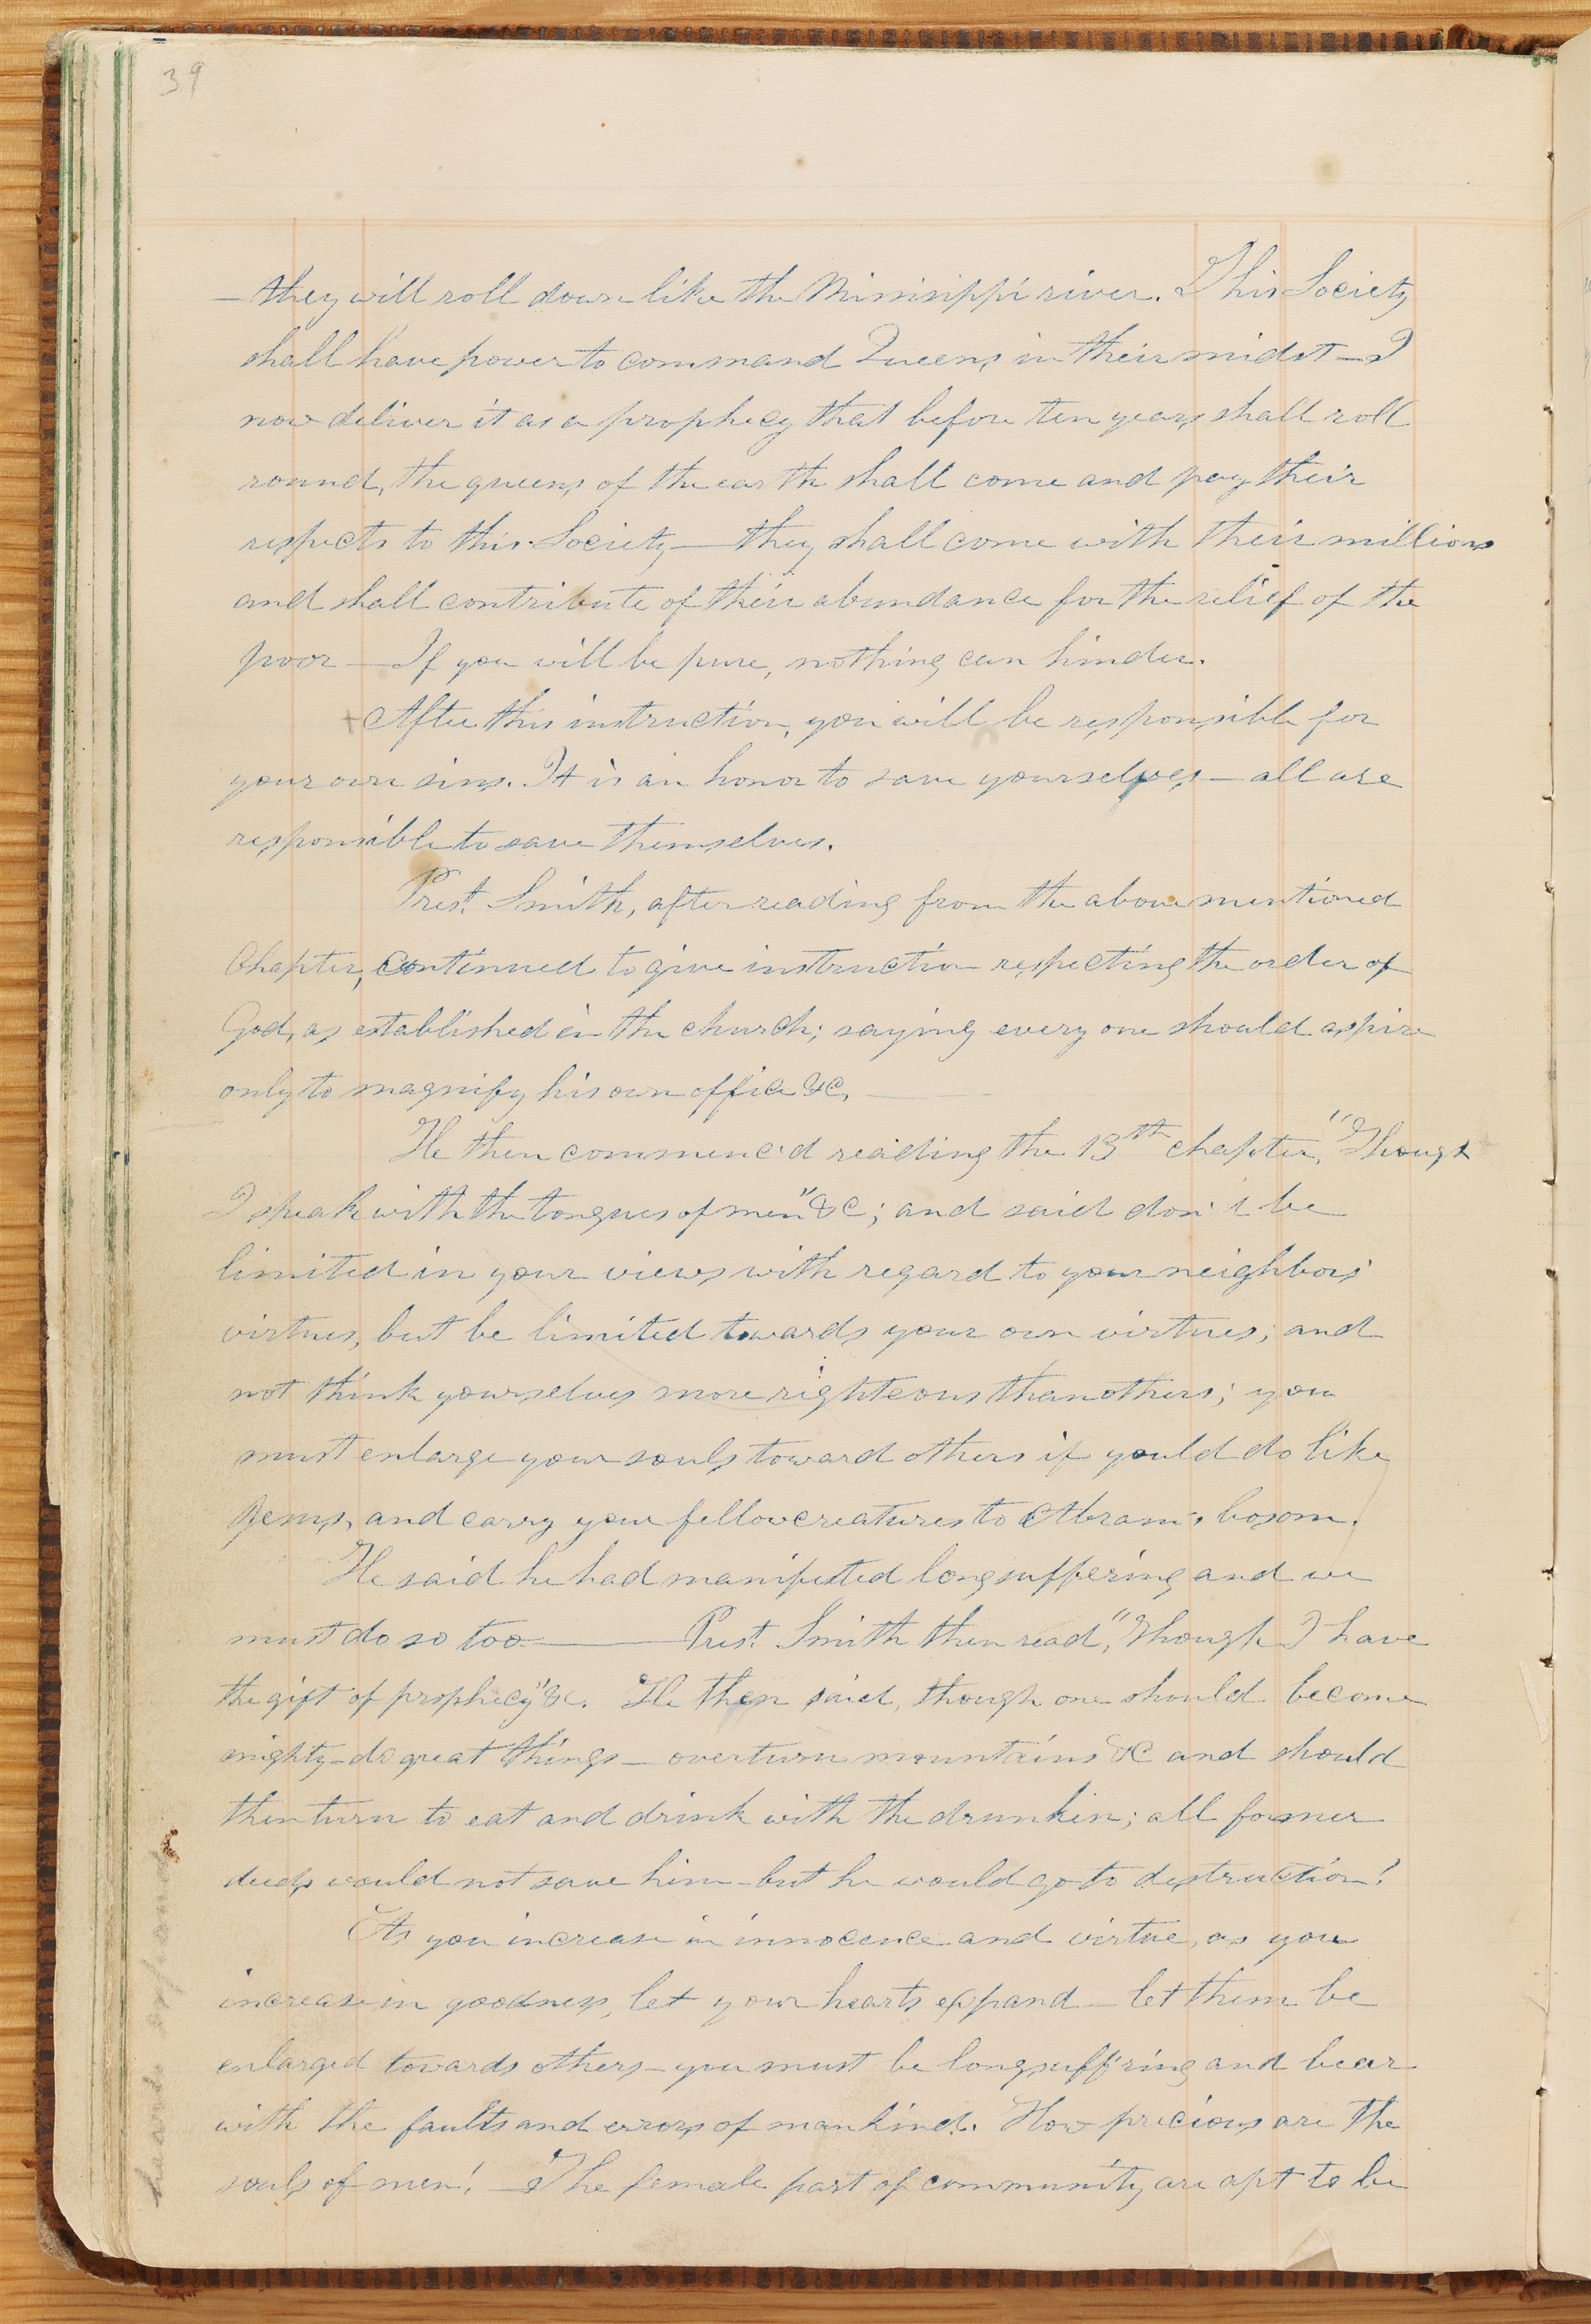 39
— they will roll down like the Missisippi river. This Society
shall have power to command Queens in their midst — I
now deliver it as a prophecy that before ten years shall roll
round, the queens of the earth shall come and pay their
respects to this Society — they shall come with their millions
and shall contribute of their abundance for the relief of the
poor — If you will be pure, nothing can hinder.
After this instruction, you will be responsible for
your own sins. It is an honor to save yourselves — all are
responsible to save themselves.
Prest. Smith, after reading from the above mentioned
Chapter, continued to give instruction respecting the order of
God, as established in the church; saying every one should aspire
only to magnify his own office &c. —
He then commenc'd reading the 13th chapter, "Though
I speak with the tongues of men" &c; and said don't be
limited in your views with regard to your neighbors'
virtues, but be limited towards your own virtues; and
not think yourselves more righteous than others; you
must enlarge your souls toward others if yould do like
Jesus, and carry your fellow creatures to Abram's bosom.
He said he had manifested long suffering and we
must do so too — Prest. Smith then read, "Though I have
the gift of prophecy" &c. He then said, though one should become
mighty — do great things — overturn mountains &c and should
then turn to eat and drink with the drunken; all former
deeds would not save him — but he would go to destruction!
As you increase in innocence and virtue, as you
increase in goodness, let your hearts expand — let them be
enlarged towards others — you must be longsuff'ring and bear
with the faults and errors of mankind. How precious are the
souls of men! — The female part of community are apt to be